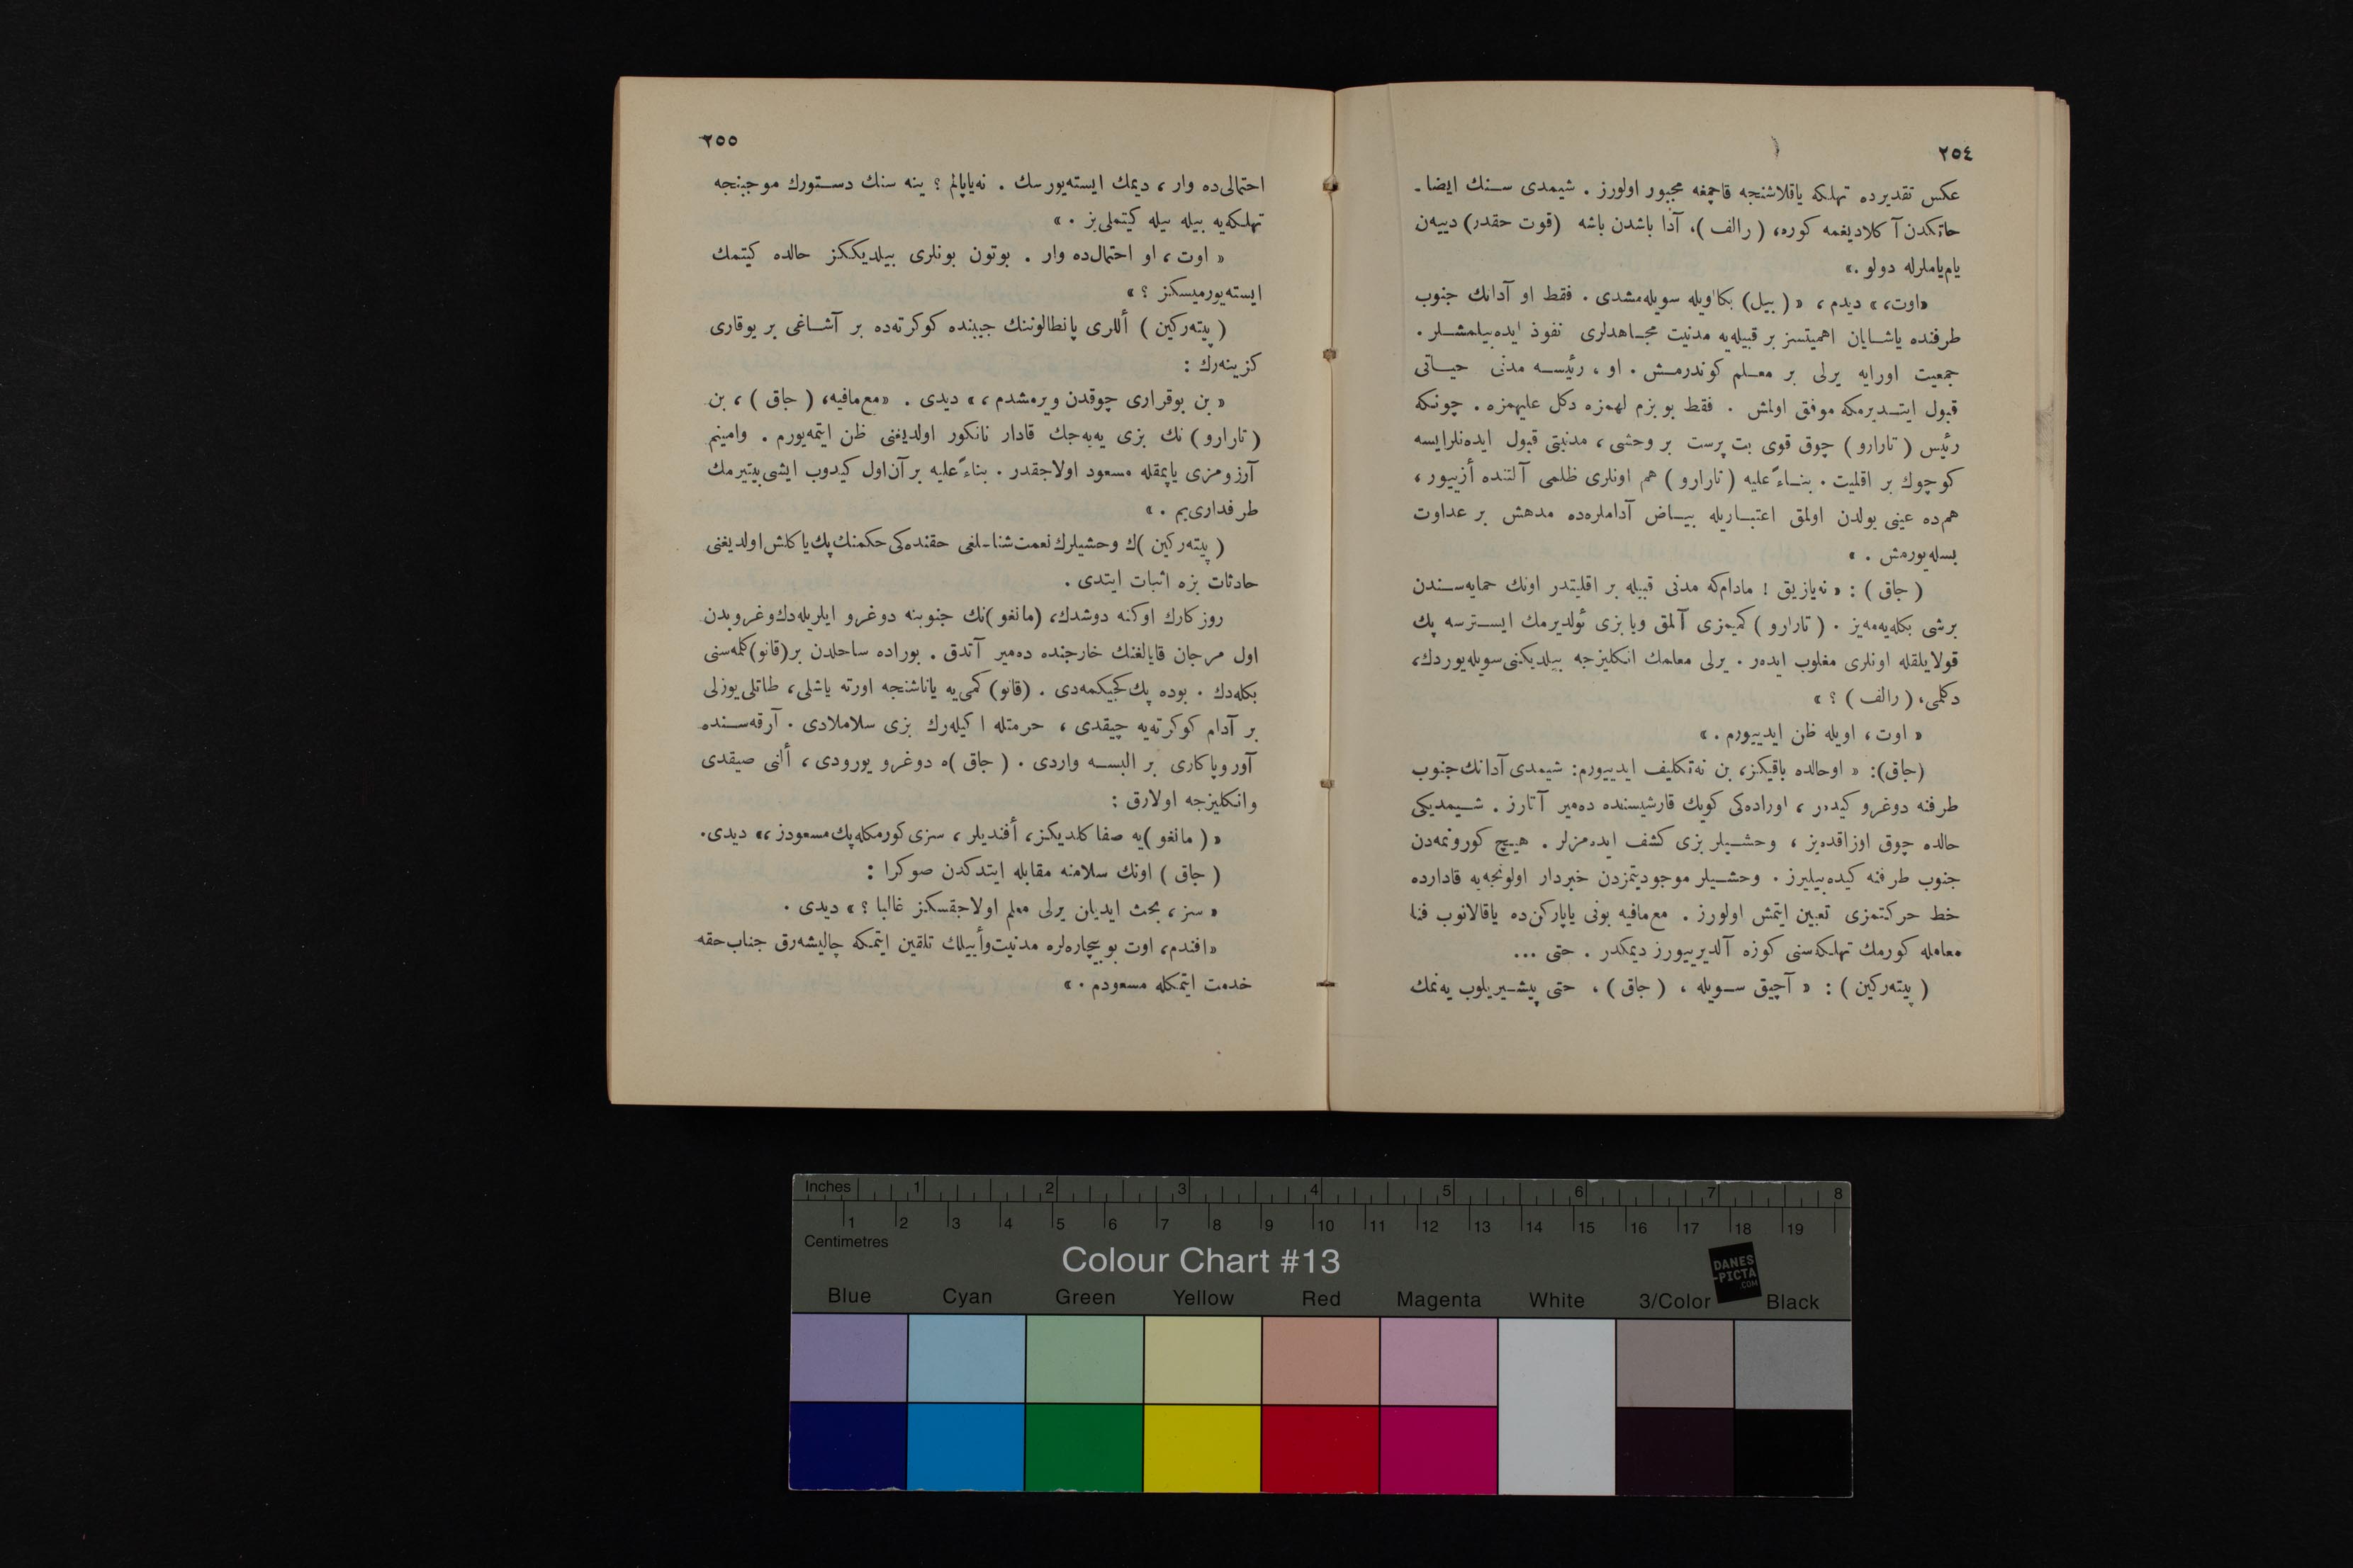 ٢٥٤
عكس تقديرده تهلكه ياقلاشنجه قاچمغه مجبور اولورز . شيمدى سنك ايضا-
حاتكدن آ كلاديغمه كوره، (رالف)، آدا باشدن باشه (قوت حقدر) دييه‌ن
يام‌ياملرله دولو .»
«اوت،» ديدم، «(بيل) بكا اويله سويله‌مشدى . فقط او آدانك جنوب
طرفنده ياشايان اهميتسز بر قبيله‌يه مدنيت مجاهدلرى نفوذ ايده‌بيلمشلر .
جمعيت اورايه يرلى بر معلم كوندرمش . او ، رئيسه مدنى حياتى
قبول ايتديرمكه موفق اولمش . فقط بو بزم لهمزه دكل عليهمزه . چونكه
رئيس (تارارو) چوق قوى بت پرست بر وحشى ، مدنيتى قبول ايده‌نلرايسه
كوچوك بر اقليت . بناءً عليه (تارارو) هم اونلرى ظلمى آلتنده أزييور ،
هم‌ده عينى يولدن اولمق اعتباريله بياض آداملره‌ده مدهش بر عداوت
بسله‌يورمش . »
(جاق) : « نه‌يازيق ! مادام‌كه مدنى قبيله بر اقليتدر اونك حمايه‌سندن
برشى بكله‌يه‌مه‌يز . (تارارو) كميمزى آلمق ويا بزى ئولديرمك ايسترسه پك
قولايلقله اونلرى مغلوب ايده‌ر . يرلى معلمك انكليزجه بيلديكنى سويله‌يوردك،
دكلمى، (رالف) ؟ »
« اوت ، اويله ظن ايدييورم . »
(جاق): « اوحالده باقيكز، بن نه‌تكليف ايدييورم: شيمدى آدانك جنوب
طرفنه دوغرو كيده‌ر ، اوراده‌كى كويك قارشيسنده ده‌مير آتارز . شيمديكى
حالده چوق اوزاقده‌يز ، وحشيلر بزى كشف ايده‌مزلر . هيچ كورونمه‌دن
جنوب طرفنه كيده‌بيليرز . وحشيلر موجوديتمزدن خبردار اولونجه‌يه قادارده
خط حركتمزى تعيين ايتمش اولورز . مع‌مافيه بونى ياپاركن‌ده ياقالانوب فنا
معامله كورمك تهلكه‌سنى كوزه آلديرييورز ديمكدر . حتى ...
(پيته‌ركين) : « آچيق سويله ، (جاق) ، حتى پيشيريلوب يه‌نمك
٢٥٥
احتمالى‌ده وار ، ديمك ايسته‌يورسك . نه‌ياپالم ؟ ينه سنك دستورك موجبنجه
تهلكه‌يه بيله بيله كيتملى‌يز . »
« اوت ، او احتمال‌ده وار . بوتون بونلرى بيلديككز حالده كيتمك
ايسته‌يورميسكز ؟ »
(پيته‌ركين) أللرى پانطالوننك جيبنده كوكرته‌ده بر آشاغى بر يوقارى
كزينه‌رك :
« بن بوقرارى چوقدن ويرمشدم ، » ديدى . «مع‌مافيه، (جاق) ، بن
(تارارو) نك بزى يه‌يه‌جك قادار نانكور اولديغنى ظن ايتمه‌يورم . وامينم
آرزومزى ياپمقله مسعود اولاجقدر . بناءً عليه بر آن‌اول كيدوب ايشى‌بيتيرمك
طرفدارى‌يم . »
(پيته‌ركين)ك وحشيلرك نعمت‌شناسلغى حقنده‌كى حكمنك‌پك‌ياكلش‌اولديغنى
حادثات بزه اثبات ايتدى .
روزكارك اوكنه دوشدك، (مانغو)نك جنوبنه دوغرو ايلريله‌دك‌وغروبدن
اول مرجان قايالغنك خارجنده ده‌مير آتدق . بوراده ساحلدن بر(قانو)كلمه‌سنى
بكله‌دك . بوده پك كجيكمه‌دى . (قانو) كمى‌يه ياناشنجه اورته ياشلى، طاتلى‌يوزلى
بر آدام كوكرته‌يه چيقدى ، حرمتله ا كيله‌رك بزى سلاملادى . آرقه‌سنده
آوروپاكارى بر البسه واردى . (جاق)ه دوغرو يورودى ، ألنى صيقدى
وانكليزجه اولارق :
« (مانغو)يه صفا كلديكز، أفنديلر ، سزى كورمكله‌پك‌مسعودز ،» ديدى.
(جاق) اونك سلامنه مقابله ايتدكدن صوكرا :
« سز ، بحث ايديلن يرلى معلم اولاجقسكز غالبا ؟ » ديدى .
«افندم، اوت بو بيچاره‌لره مدنيت‌وأييلك تلقين ايتمكه چاليشه‌رق جناب‌حقه
خدمت ايتمكله مسعودم . »
Inches 1 2 3 4 5 6 7 8
1 2 3 4 5 6 7 8 9 10 11 12 13 14 15 16 17 18 19
Centimetres
Colour Chart #13
DANES
-PICTA
.COM
Blue Cyan Green Yellow Red Magenta White 3/Color Black